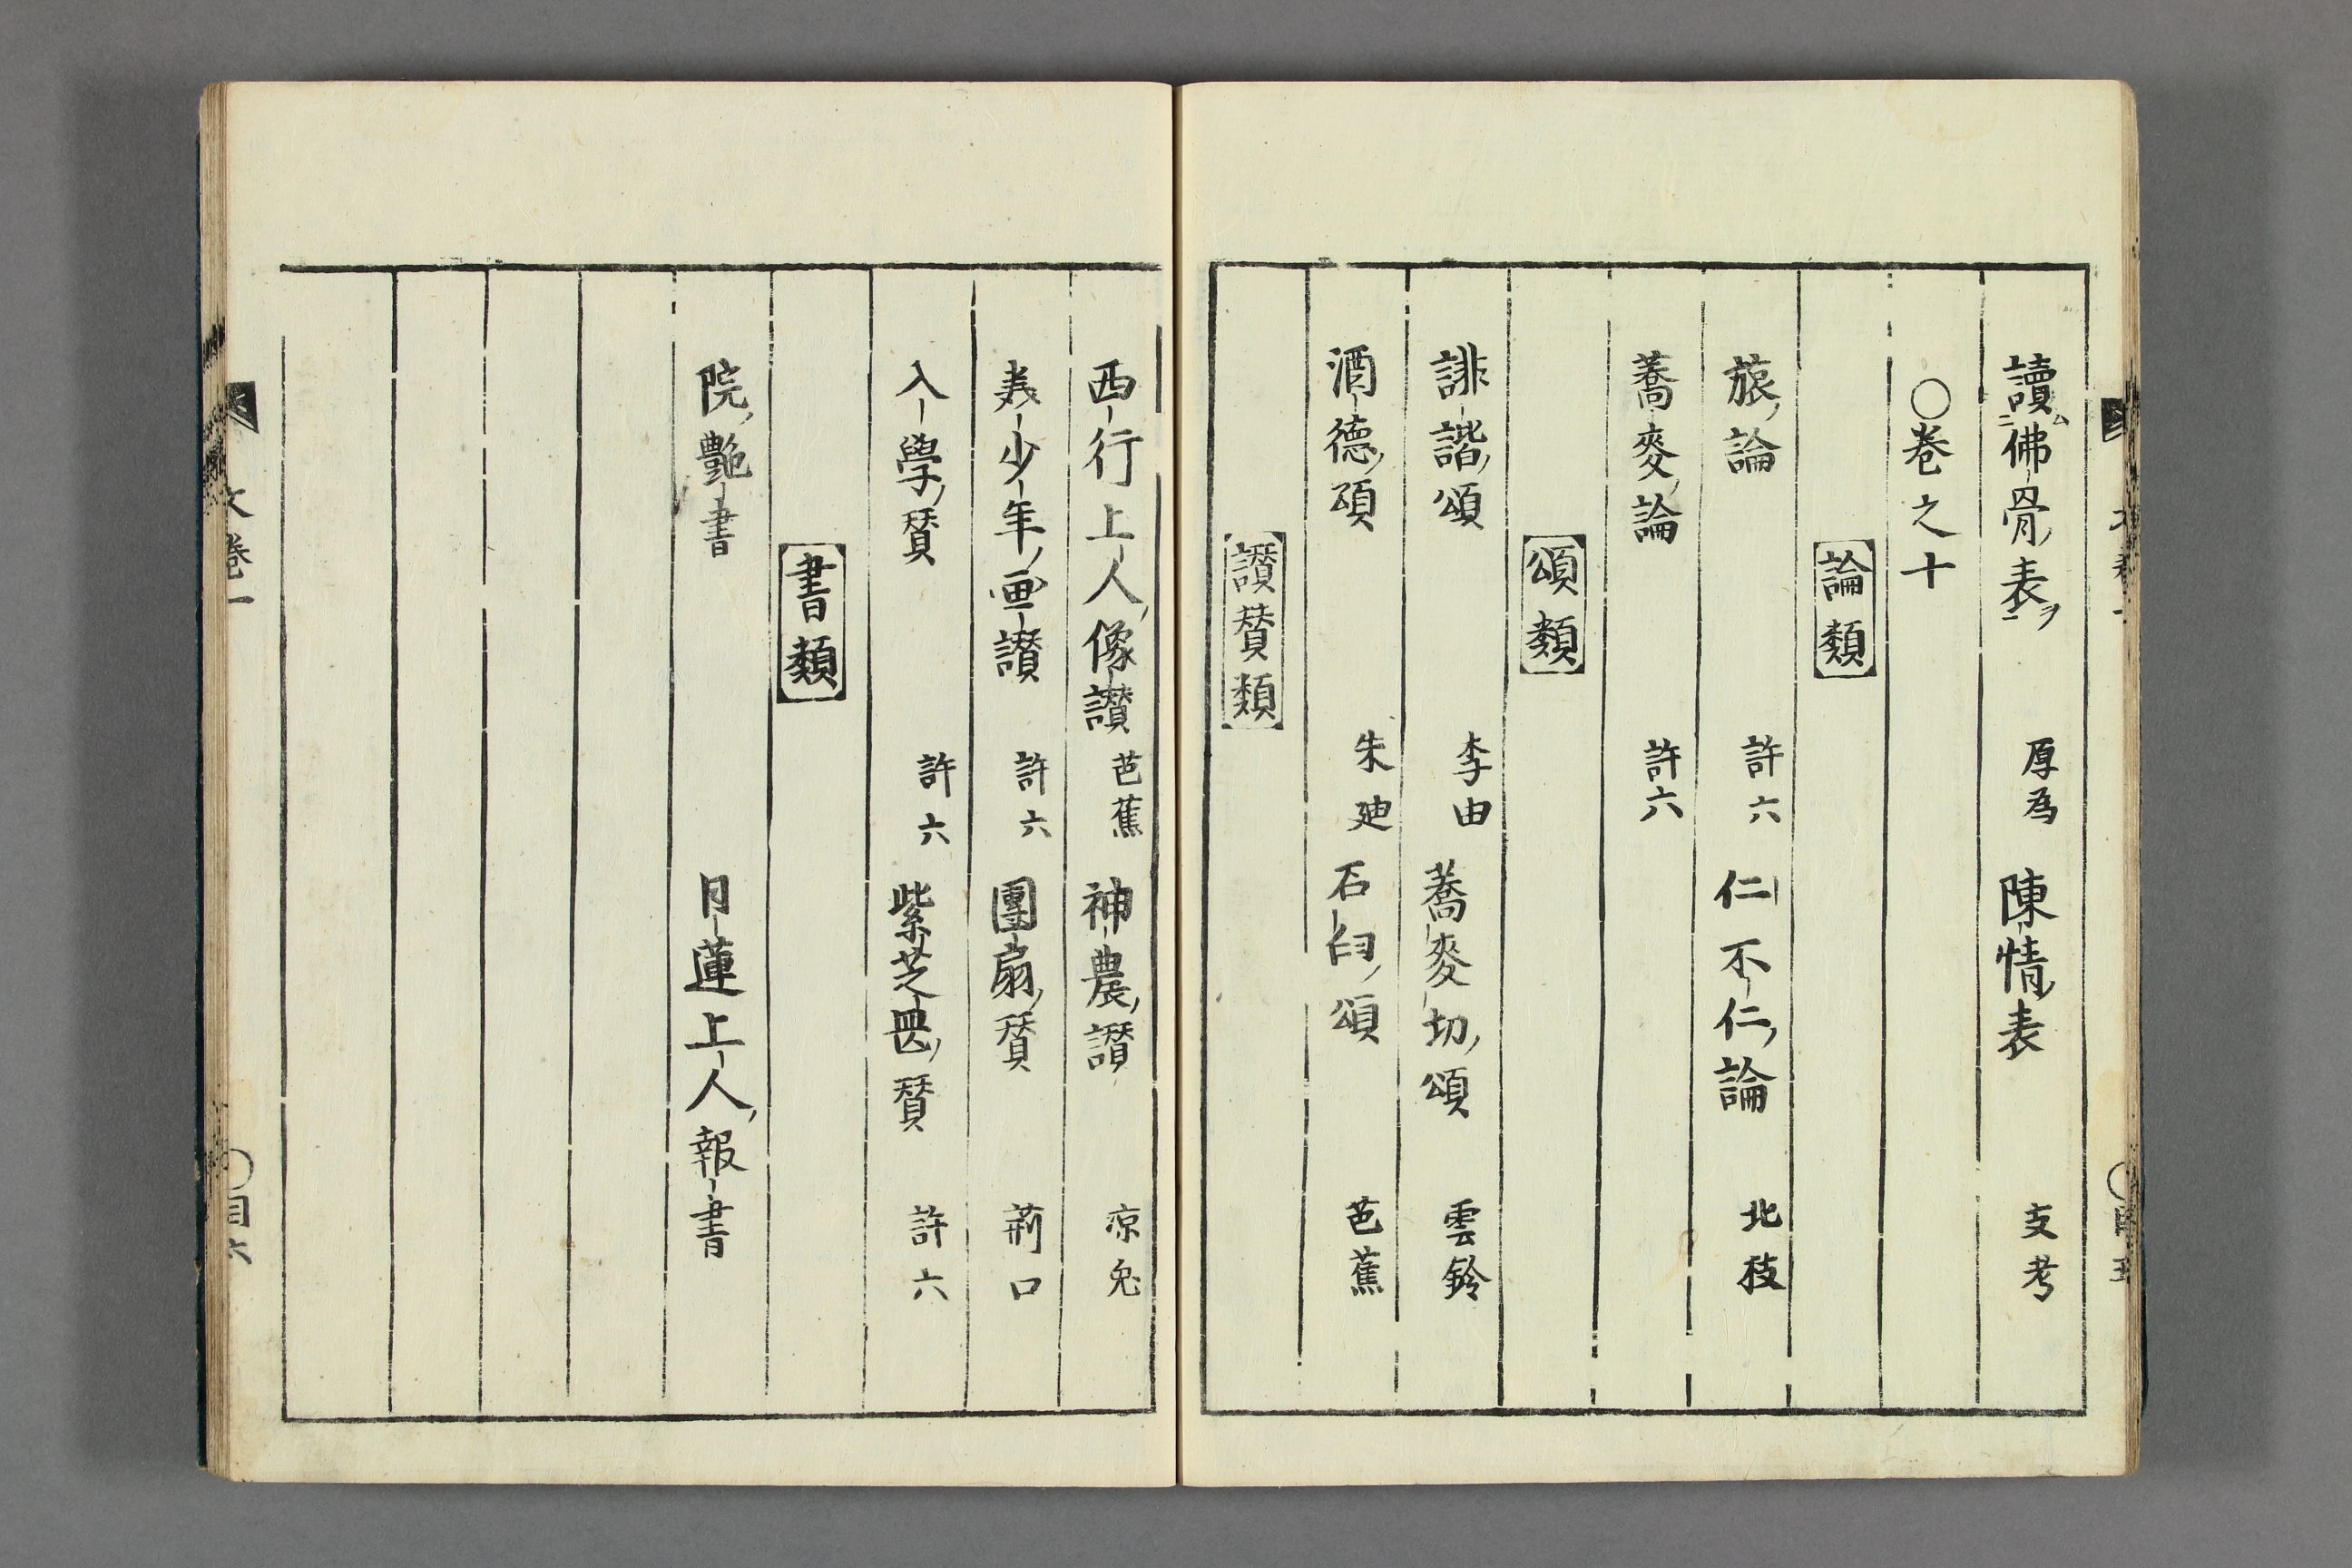 讀佛骨表 厚為 陳情表 支考
○卷之十
論類
旅論 許六 仁不仁論 北枝
蕎麥論 許六
頌類
誹諧頌 李由 蕎麥切頌 雲鈴
酒德頌 朱廸 石臼頌 芭蕉
讃賛類
西行上人像讃 芭蕉 神農讃 凉兔
美少年画讃 許六 團扇賛 荊口
入學賛 許六 紫芝 賛 許六
書類
院艶書 日蓮上人報書
文卷一 ○目六